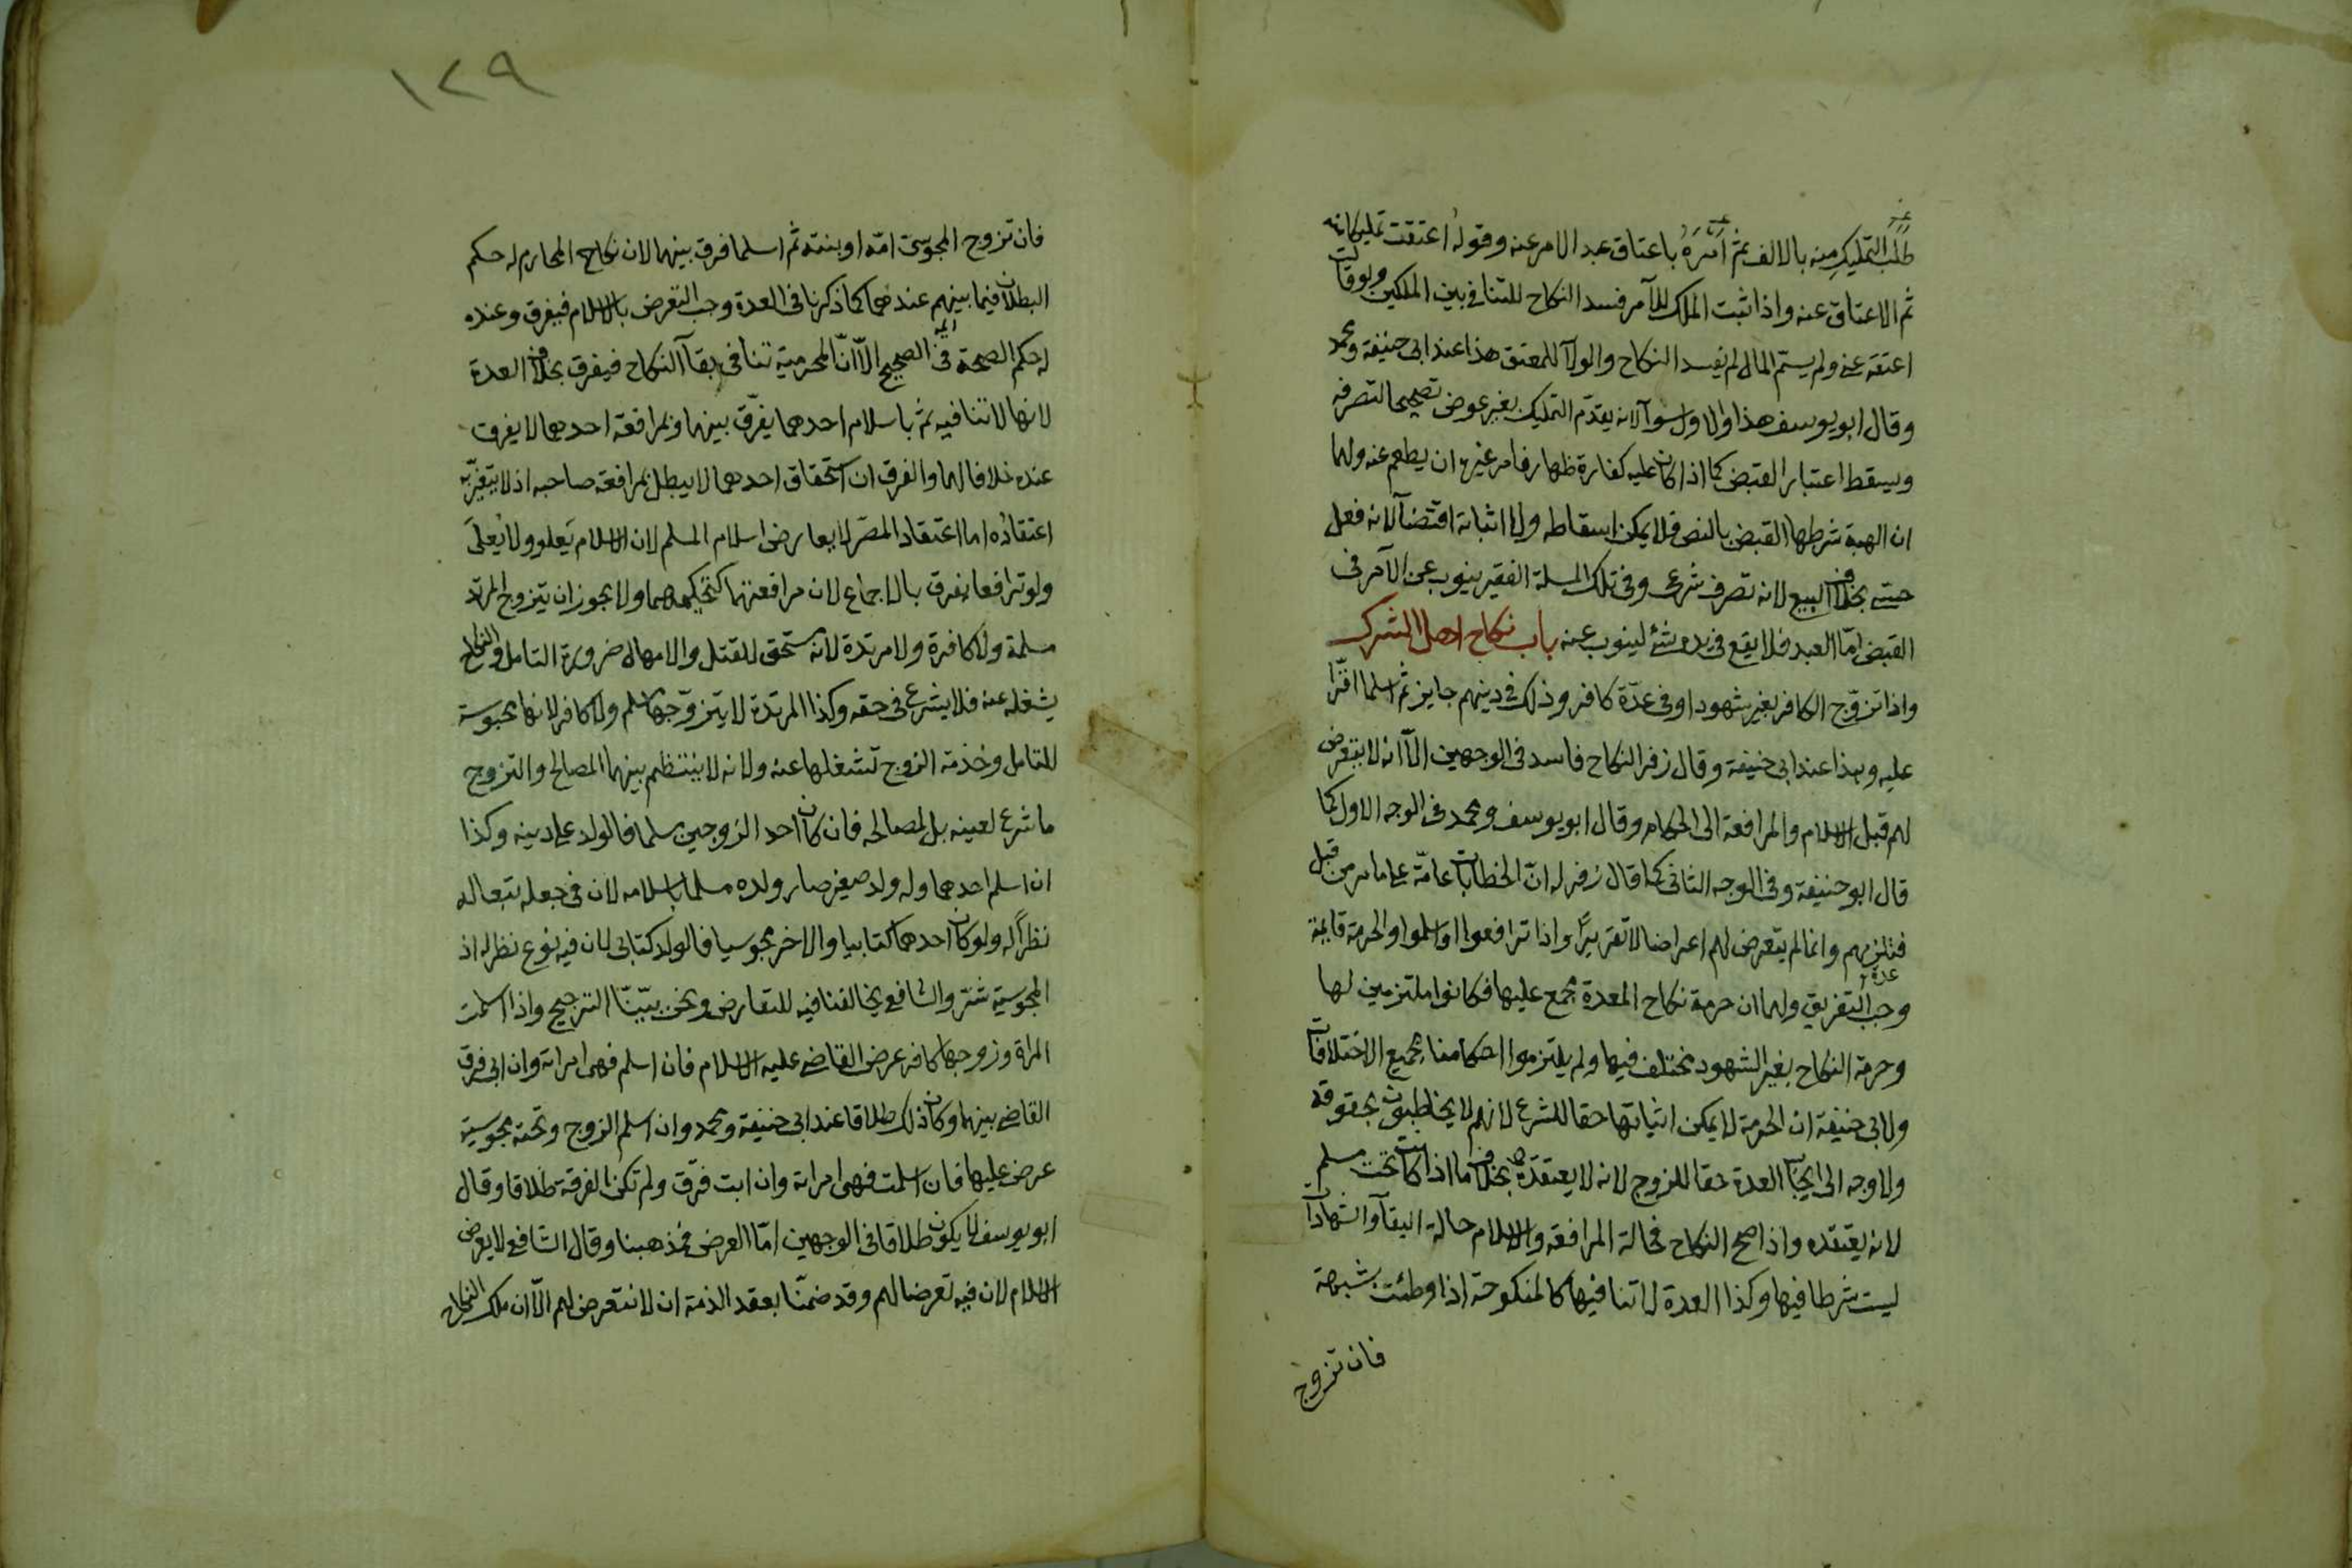 طلب التمليك منه بالالف ثم امره باعتاق عبد الامر عنه وقوله اعتقت تمليكا منه
ثم الاعتاق عنه واذا ثبت الملك للآمر فسد النكاح للتنافي بين الملكين ولو قالت
اعتقه عني ولم يسم المال لم يفسد النكاح والولآ للمعتق هذا عند ابي حنيفة ومحمد
وقال ابو يوسف هذا والاول سوآ لانه يقدّم التمليك بغير عوض تصحيحا لتصرفه
ويسقط اعتبار القبض كما اذا كان عليه كفارة ظهار فامر غيره ان يطعم عنه ولهما
ان الهبة شرطها القبض بالنص فلا يمكن اسقاطه ولا اثباته اقتضآ لانه فعل
حسي بخلاف البيع لانه تصرف شرعي وفي تلك المسلة الفقير ينوب عن الآمر في
القبض امّا العبد فلا يقع في يده شئ لينوب عنه باب نكاح اهل الشرك
واذا تزوّج الكافر بغير شهود او في عدّة كافر وذلك في دينهم جايز ثم اسلما اقرّا
عليه وهذا عند ابي حنيفة وقال زفر النكاح فاسد في الوجهين الاّ انه لا يتعرض
لهم قبل الاسلام والمرافعة الى الحكام وقال ابو يوسف ومحمد في الوجه الاول كما
قال ابو حنيفة وفي الوجه الثاني كما قال زفر له انّ الخطابات عامّة على ما مر من قبل
فتلزمهم وانما لم يتعرض لهم اعراضا لا تقريرًا واذا ترافعوا او اسلموا والحرمة قايمة
وجب التفريق ولهما ان حرمة نكاح المعتدة مجمع عليها فكانوا ملتزمين لها
وحرمة النكاح بغير الشهود مختلف فيها ولم يلتزموا احكامنا بجميع الاختلافات
ولابي حنيفة ان الحرمة لا يمكن اثباتها حقا للشرع لانهم لا يخاطبون بحقوقه
ولا وجه الى ايجاب العدة حقا للزوج لانه لا يعتقده بخلاف ما اذا كانت تحت مسلم
لانه يعتقده واذا صح النكاح فحالة المرافعة والاسلام حالة البقآ والشهادة
ليست شرطا فيها وكذا العدة لا تنافيها كالمنكوحة اذا وطئت بشبهة
فان تزوج
١٢٩
فان تزوج المجوسي امّه او بنته ثم اسلما فرق بينهما لان نكاح المحارم له حكم
البطلان فيما بينهم عندهما كما ذكرنا في العدة وجب التعرض بالاسلام فيفرق وعنده
له حكم الصحة في الصحيح الاّ انّ المحرمية تنافي بقآ النكاح فيفرق بخلاف العدة
لانها لا تنافيه ثم باسلام احدهما يفرّق بينهما وبمرافعة احدهما لا يفرق
عنده خلافا لهما والفرق ان استحقاق احدهما لا يبطل بمرافعة صاحبه اذ لا يتغيّر به
اعتقاده اما اعتقاد المصرّ لا يعارض اسلام المسلم لان الاسلام يَعلو ولا يُعلى
ولو ترافعا يفرق بالاجماع لان مرافعتهما كتحكيمهما ولا يجوز ان يتزوج المرتد
مسلمة ولا كافرة ولا مرتدة لانه مستحق للقتل والامهال ضرورة التامل والنكاح
يشغله عنه فلا يشرع في حقه وكذا المرتدة لا يتزوّجها مسلم ولا كافر لانها محبوسة
للتامل وخدمة الزوج تشغلها عنه ولانه لا ينتظم بينهما المصالح والتزوج
ما شرع لعينه بل لمصالحه فان كان احد الزوجين مسلما فالولد على دينه وكذا
ان اسلم احدهما وله ولد صغير صار ولده مسلما باسلامه لان في جعله تبعا له
نظراً له ولو كان احدهما كتابيا والاخر مجوسيا فالولد كتابي لان فيه نوع نظر له اذ
المجوسية شر والشافعي يخالفنا فيه للتعارض ونحن بيّنّا الترجيح واذا اسلمت
المراة وزوجها كافر عرض القاضي عليه الاسلام فان اسلم فهي امراته وان ابى فرق
القاضي بينهما وكان ذلك طلاقا عند ابي حنيفة ومحمد وان اسلم الزوج وتحته مجوسية
عرض عليها فان اسلمت فهي امراته وان ابت فرّق ولم تكن الفرقة طلاقا وقال
ابو يوسف لا يكون طلاقا في الوجهين امّا العرض فمذهبنا وقال الشافعي لا يعرض
الاسلام لان فيه تعرضا لهم وقد ضمنّا بعقد الذمة ان لا نتعرض لهم الاّ ان ملك النكاح